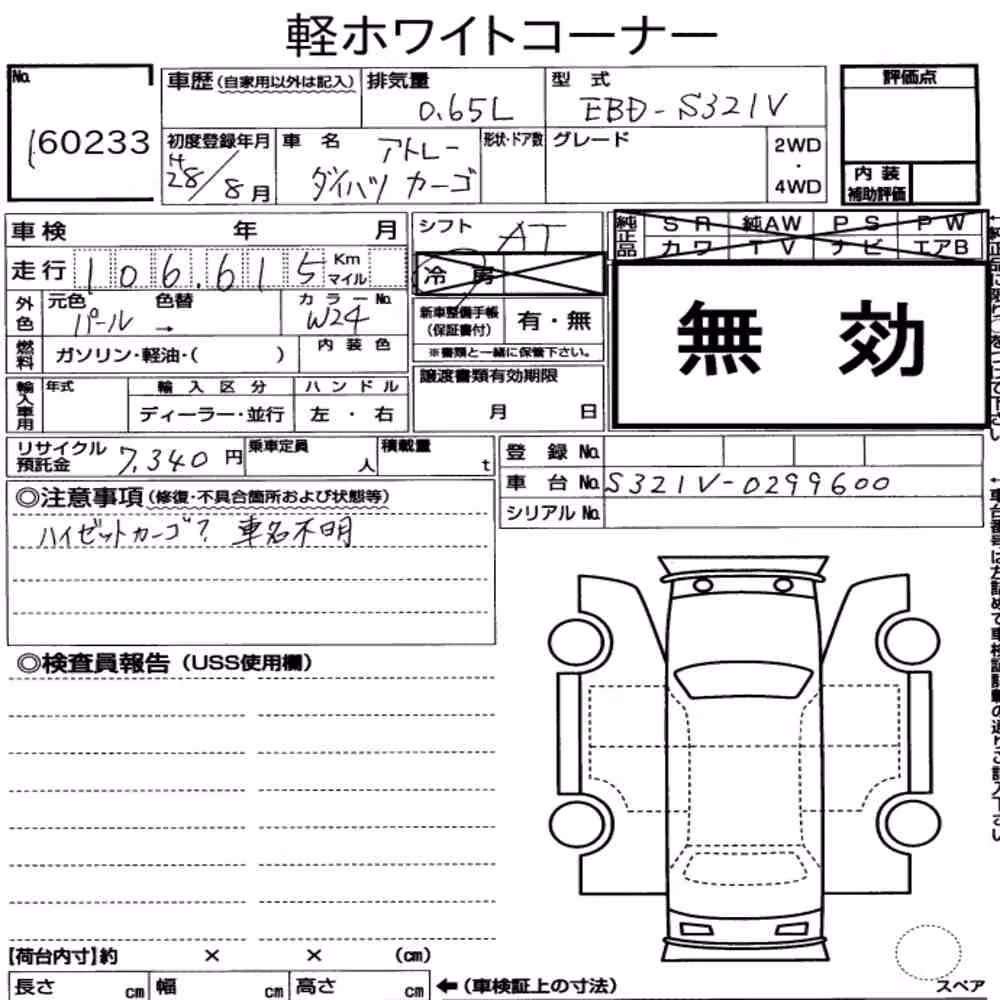 軽ホワイトコーナー
No. 160233
車歴(自家用以外は記入) 排気量 0.65L 型式 EBD-S321V
評価点
初度登録年月 H28/8月 車名 アトレー ダイハツ カーゴ 形状・ドア数 グレード 2WD・4WD
内装補助評価
車検 年 月 シフト AT
純正品 SR 純AW PS PW
カワ TV ナビ エアB
走行 106.615 Km マイル 冷房
無効
外色 元色 パール 色替 → カラーNo. W24
新車整備手帳(保証書付) 有・無
※書類と一緒に保管下さい。
燃料 ガソリン・軽油・( ) 内装色
譲渡書類有効期限 月 日
輸入車用 年式 輸入区分 ハンドル
ディーラー・並行 左・右
リサイクル預託金 7,340円 乗車定員 人 積載量 t
登録No.
車台No. S321V-0299600
シリアルNo.
◎注意事項(修復・不具合箇所および状態等)
ハイゼットカーゴ? 車名不明
◎検査員報告(USS使用欄)
【荷台内寸】約 × × (cm)
長さ cm 幅 cm 高さ cm ←(車検証上の寸法)
スペア